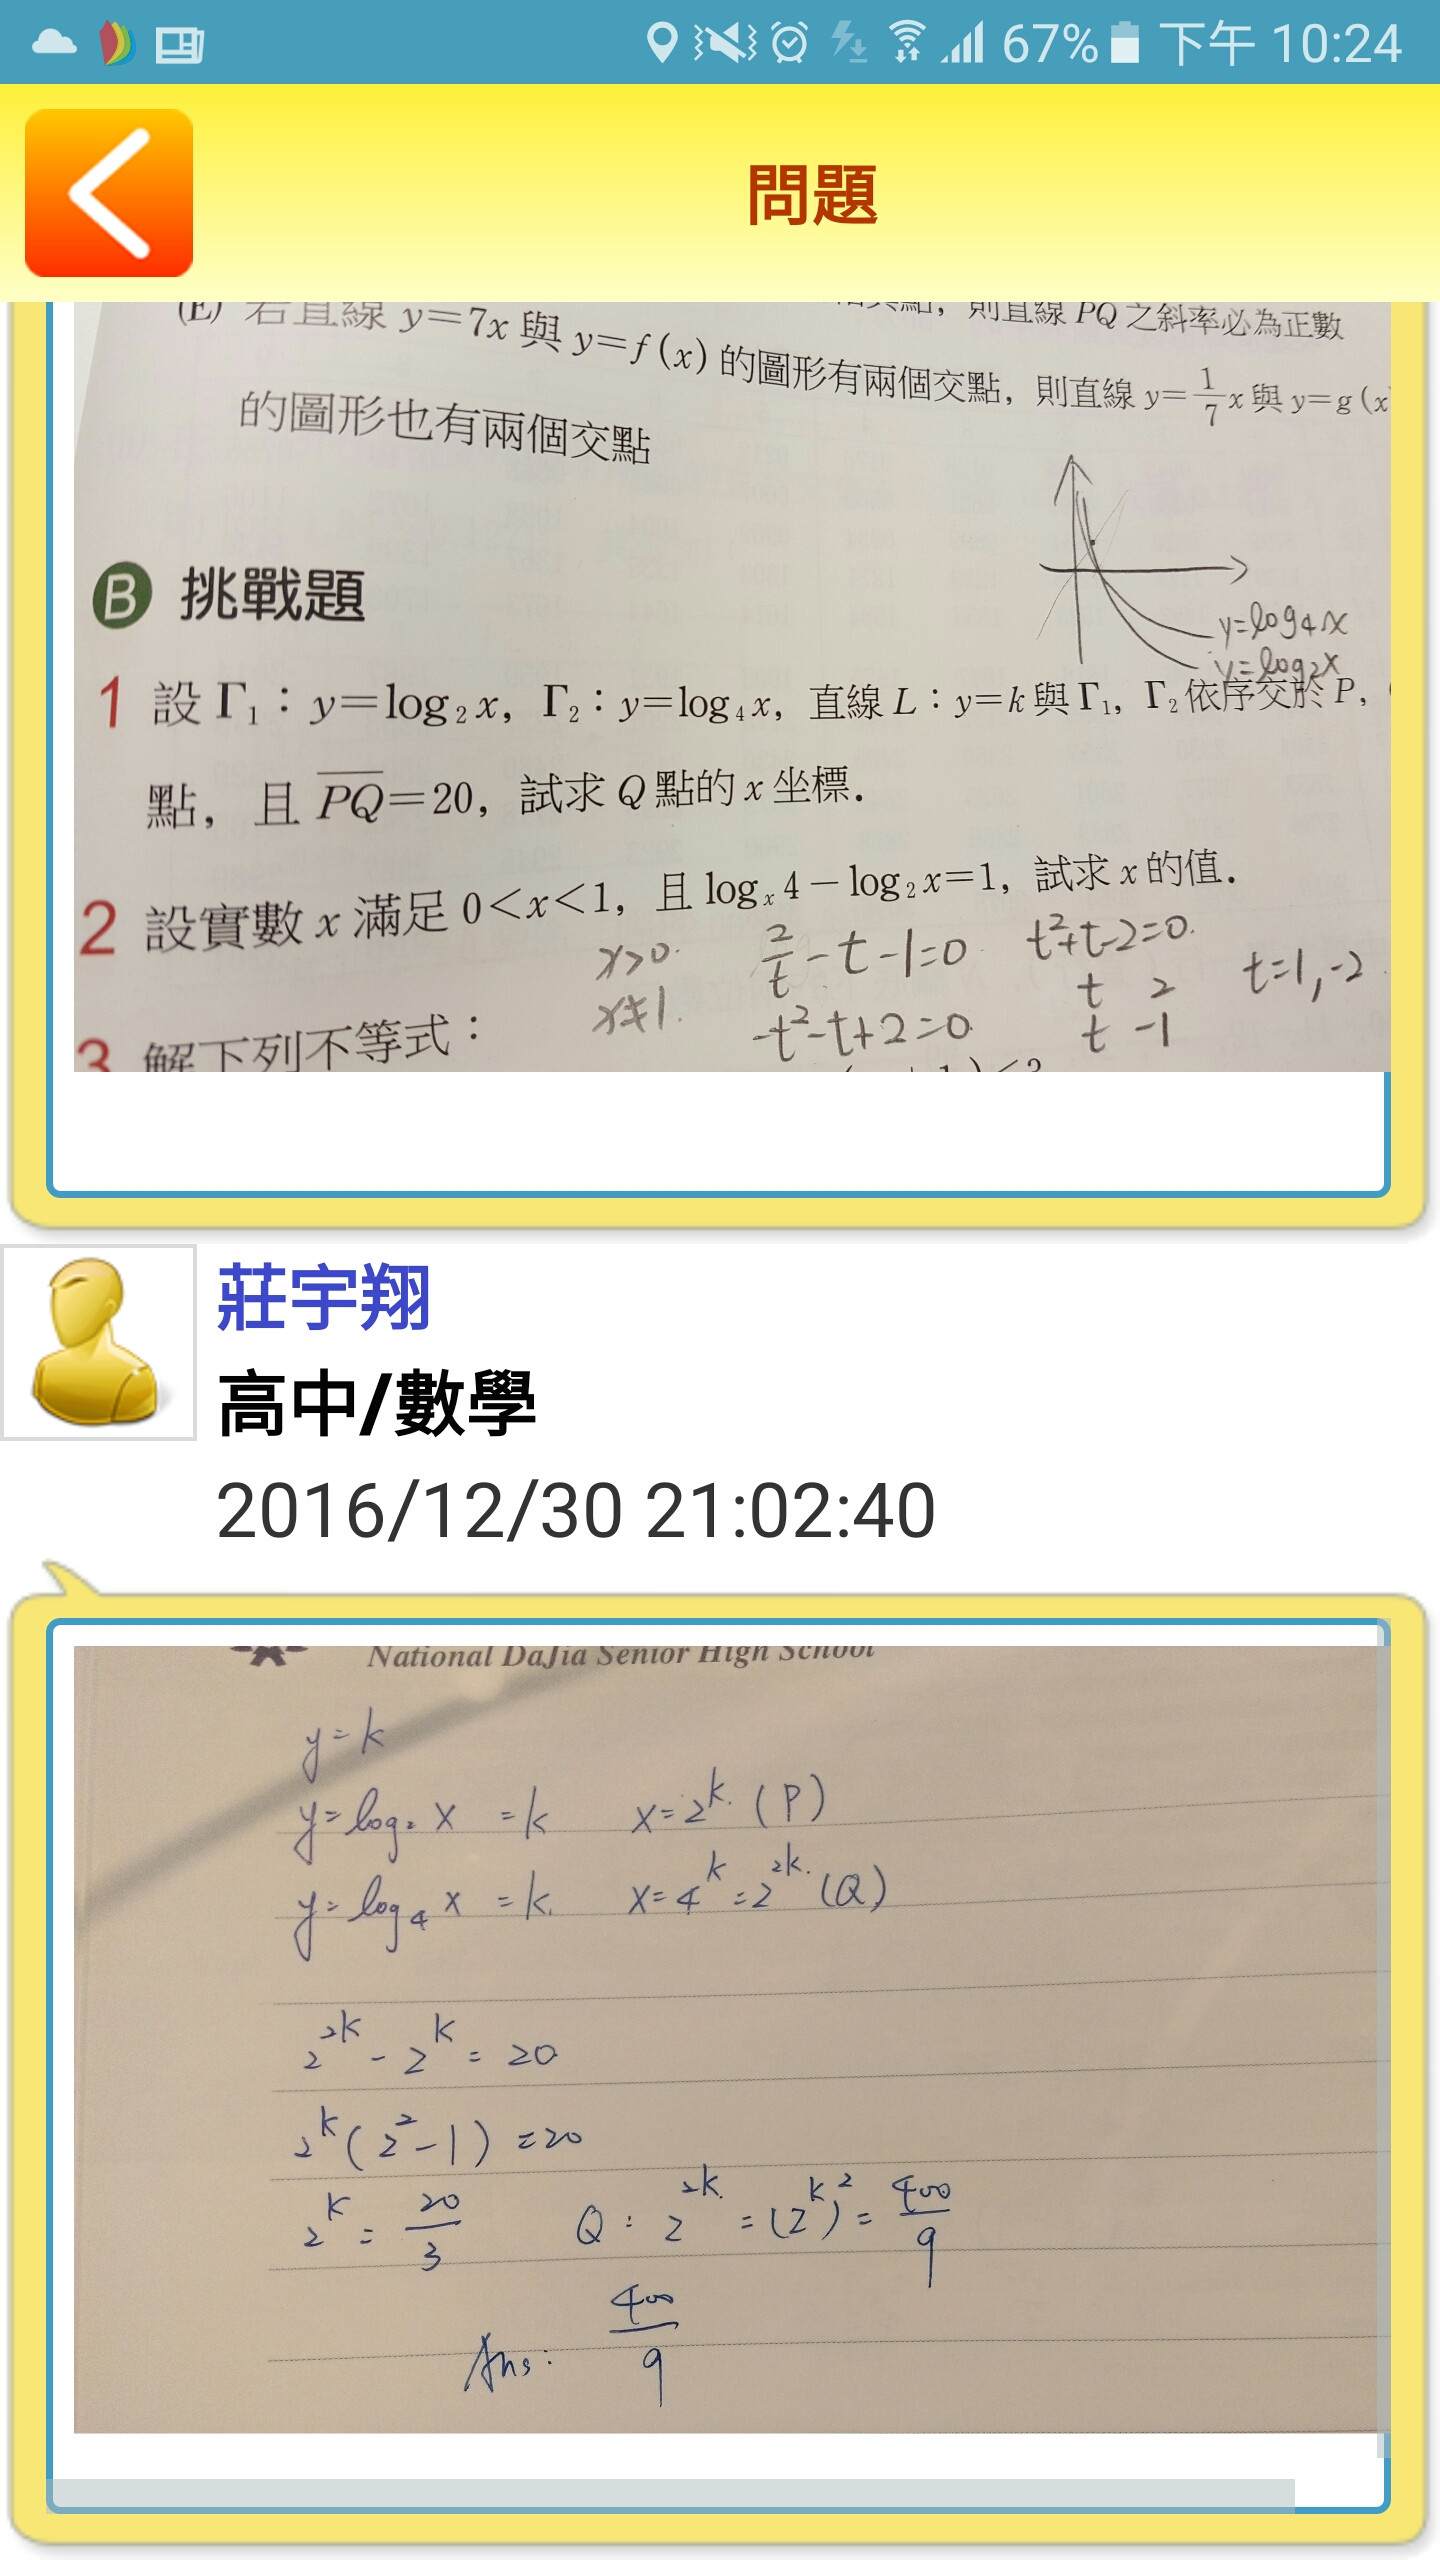 67% 下午 10:24
問題
則直線 PQ 之斜率必為正數
(E) 若直線 y=7x 與 y=f(x) 的圖形有兩個交點，則直線 y=1/7 x 與 y=g(x
的圖形也有兩個交點
y=log₄x
y=log₂x
B 挑戰題
1 設 Γ₁：y=log₂x，Γ₂：y=log₄x，直線 L：y=k 與 Γ₁，Γ₂ 依序交於 P，
點，且 PQ=20，試求 Q 點的 x 坐標．
2 設實數 x 滿足 0<x<1，且 logₓ4－log₂x=1，試求 x 的值．
x>0 2/t-t-1=0 t²+t-2=0 t=1,-2
x≠1 -t²-t+2=0 t 2
t -1
3 解下列不等式：
莊宇翔
高中/數學
2016/12/30 21:02:40
National DaJia Senior High School
y=k
y=log₂x =k x=2^k (P)
y=log₄x =k x=4^k=2^2k (Q)
2^2k-2^k=20
2^k(2²-1)=20
2^k=20/3 Q:2^2k=(2^k)²=400/9
Ans: 400/9